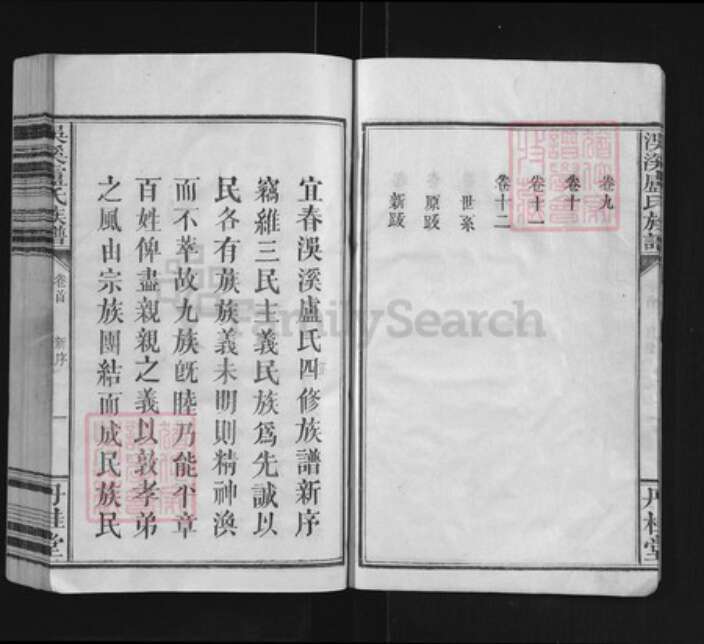 淏溪盧氏族譜
丹桂堂
卷九
卷十
卷十一
卷十二
世系
原跋
新跋
宜春淏溪盧氏四修族譜新序
竊維三民主義民族爲先誠以
民各有族族義未明則精神渙
而不萃故九族旣睦乃能平章
百姓俾盡親親之義以敦孝弟
之風由宗族團結而成民族民
淏溪盧氏族譜
卷首
新序
一
丹桂堂
FamilySearch